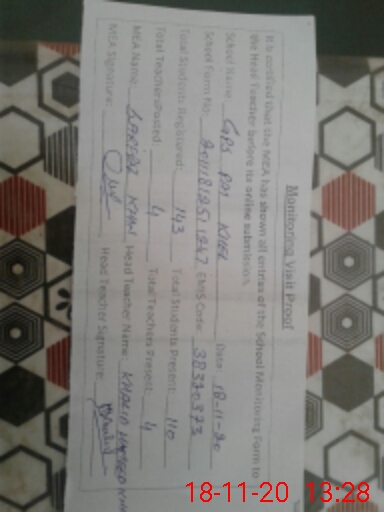 Monitoring Visit Proof
It is certified that the MEA has shown all entries of the School Monitoring Form to
the Head Teacher before its online submission.
School Name: GPS PAI KHEL Date: 18-11-20
School Form No: EMIS Code: 38320373
Total Students Registered: 143 Total Students Present: 110
Total Teachers Posted: 4 Total Teachers Present: 4
MEA Name: KHAN Head Teacher Name: KHALID HAMEED KHAN
MEA Signature: Head Teacher Signature:
18-11-20 13:28